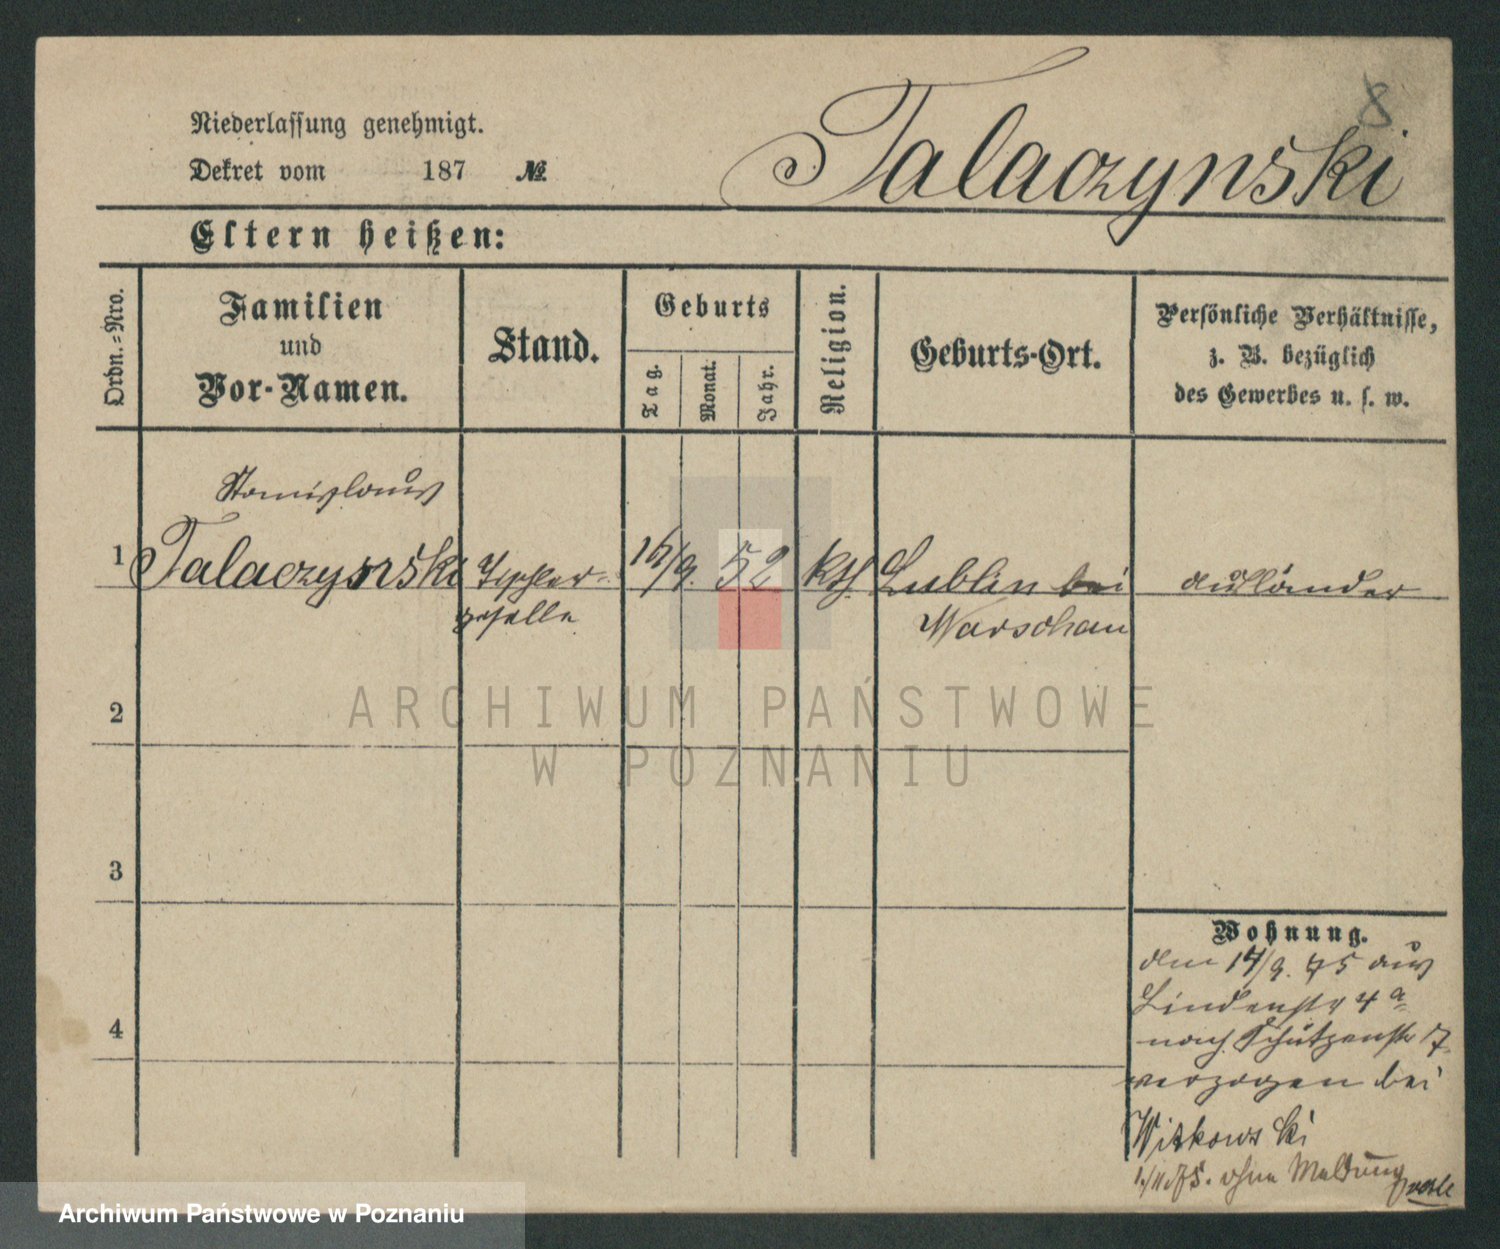 8
Talaczynski
Niederlassung genehmigt.
Dekret vom 187 №
Eltern heißen:
Ordn.=Nro.
Familien
und
Vor-Namen.
Stand.
Geburts
Tag.
Monat.
Jahr.
Religion.
Geburts-Ort.
Persönliche Verhältnisse,
z. B. bezüglich
des Gewerbes u. s. w.
Stanislaus
1 Talaczynski Töpfer- 16/9. 52 kth Lublin bei ausländer
geselle Warschau
2
3
4
Wohnung.
den 17/9. 75 aus
Lindenstr 4 a
nach Schützenstr 17
verzogen bei
Witkowski
1/11 75. ohne Meldung
ARCHIWUM PAŃSTWOWE
W POZNANIU
Archiwum Państwowe w Poznaniu